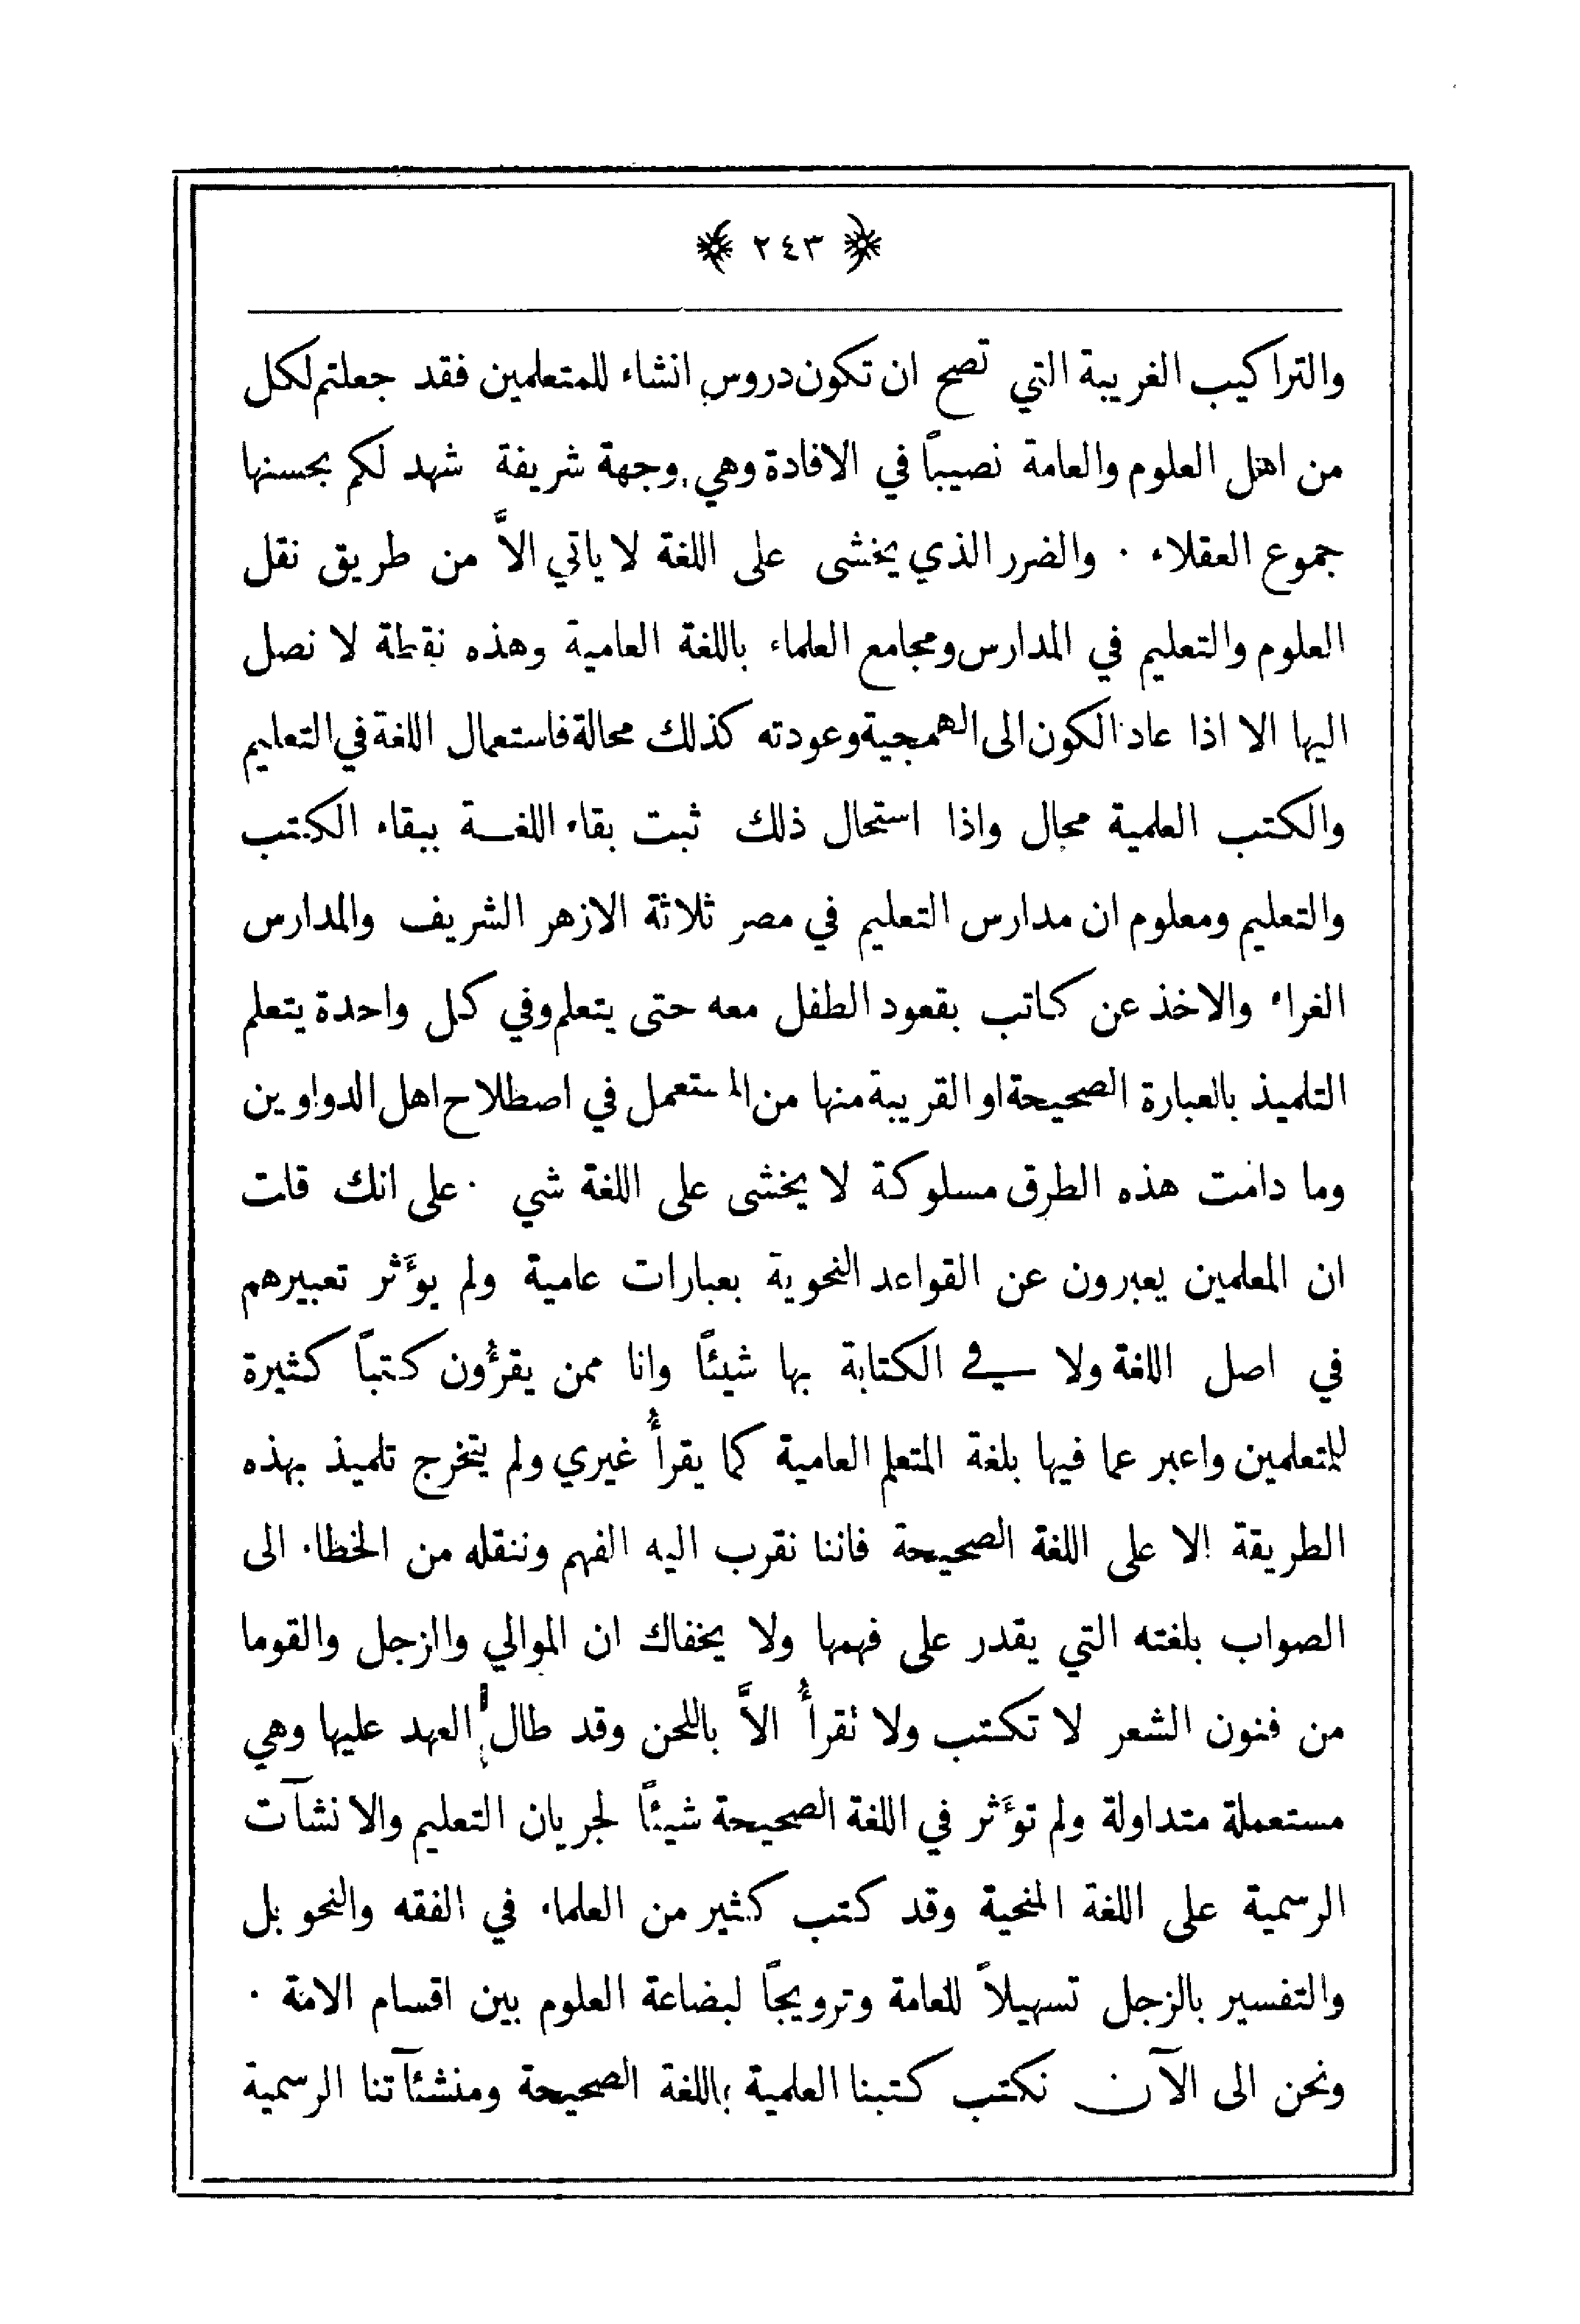 ﴿ ٢٤٣ ﴾
والتراكيب الغريبة التي تصح ان تكون دروس انشاء للمتعلمين فقد جعلتم لكل
من اهل العلوم والعامة نصيباً في الافادة وهي وجهة شريفة شهد لكم بحسنها
جموع العقلاء . والضرر الذي يخشى على اللغة لا ياتي الاَّ من طريق نقل
العلوم والتعليم في المدارس ومجامع العلماء باللغة العامية وهذه نقطة لا نصل
اليها الا اذا عاد الكون الى الهمجية وعودته كذلك محالة فاستعمال اللغة في التعليم
والكتب العلمية محال واذا استحال ذلك ثبت بقاء اللغة ببقاء الكتب
والتعليم ومعلوم ان مدارس التعليم في مصر ثلاثة الازهر الشريف والمدارس
الغراء والاخذ عن كاتب بقعود الطفل معه حتى يتعلم وفي كل واحدة يتعلم
التلميذ بالعبارة الصحيحة او القريبة منها من المستعمل في اصطلاح اهل الدواوين
وما دامت هذه الطرق مسلوكة لا يخشى على اللغة شي . على انك قلت
ان المعلمين يعبرون عن القواعد النحوية بعبارات عامية ولم يوَّثر تعبيرهم
في اصل اللغة ولا في الكتابة بها شيئاً وانا ممن يقرؤُن كتباً كثيرة
للمتعلمين واعبر عما فيها بلغة المتعلم العامية كما يقرأُ غيري ولم يتخرج تلميذ بهذه
الطريقة الا على اللغة الصحيحة فاننا نقرب اليه الفهم وننقله من الخطاء الى
الصواب بلغته التي يقدر على فهمها ولا يخفاك ان الموالي والزجل والقوما
من فنون الشعر لا تكتب ولا تقرأُ الاَّ باللحن وقد طال العهد عليها وهي
مستعملة متداولة ولم توَّثر في اللغة الصحيحة شيئاً لجريان التعليم والانشآت
الرسمية على اللغة المنحية وقد كتب كثير من العلماء في الفقه والنحو بل
والتفسير بالزجل تسهيلاً للعامة وترويجاً لبضاعة العلوم بين اقسام الامة .
ونحن الى الآن نكتب كتبنا العلمية باللغة الصحيحة ومنشئآتنا الرسمية